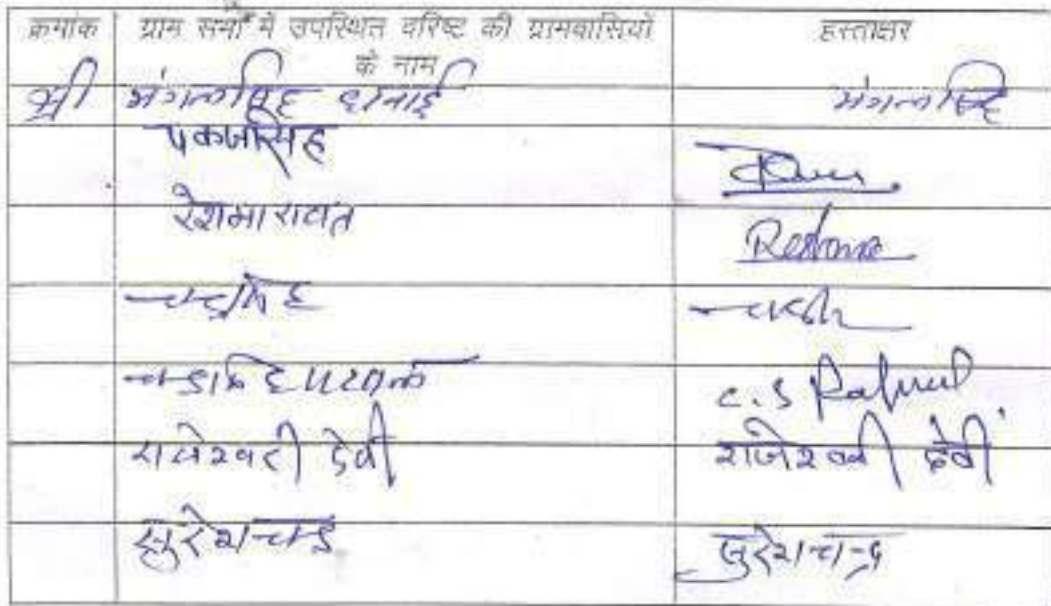 क्रमांक ग्राम सभा में उपस्थित वरिष्ट की ग्रामवासियों के नाम हस्ताक्षर
श्री मंगलसिंह धनाई मंगलसिंह
पंकजसिंह
रेशमा रावत Reshma
चन्द्रसिंह
C.S
राजेश्वरी देवी राजेश्वरी देवी
सुरेशचन्द्र सुरेशचन्द्र